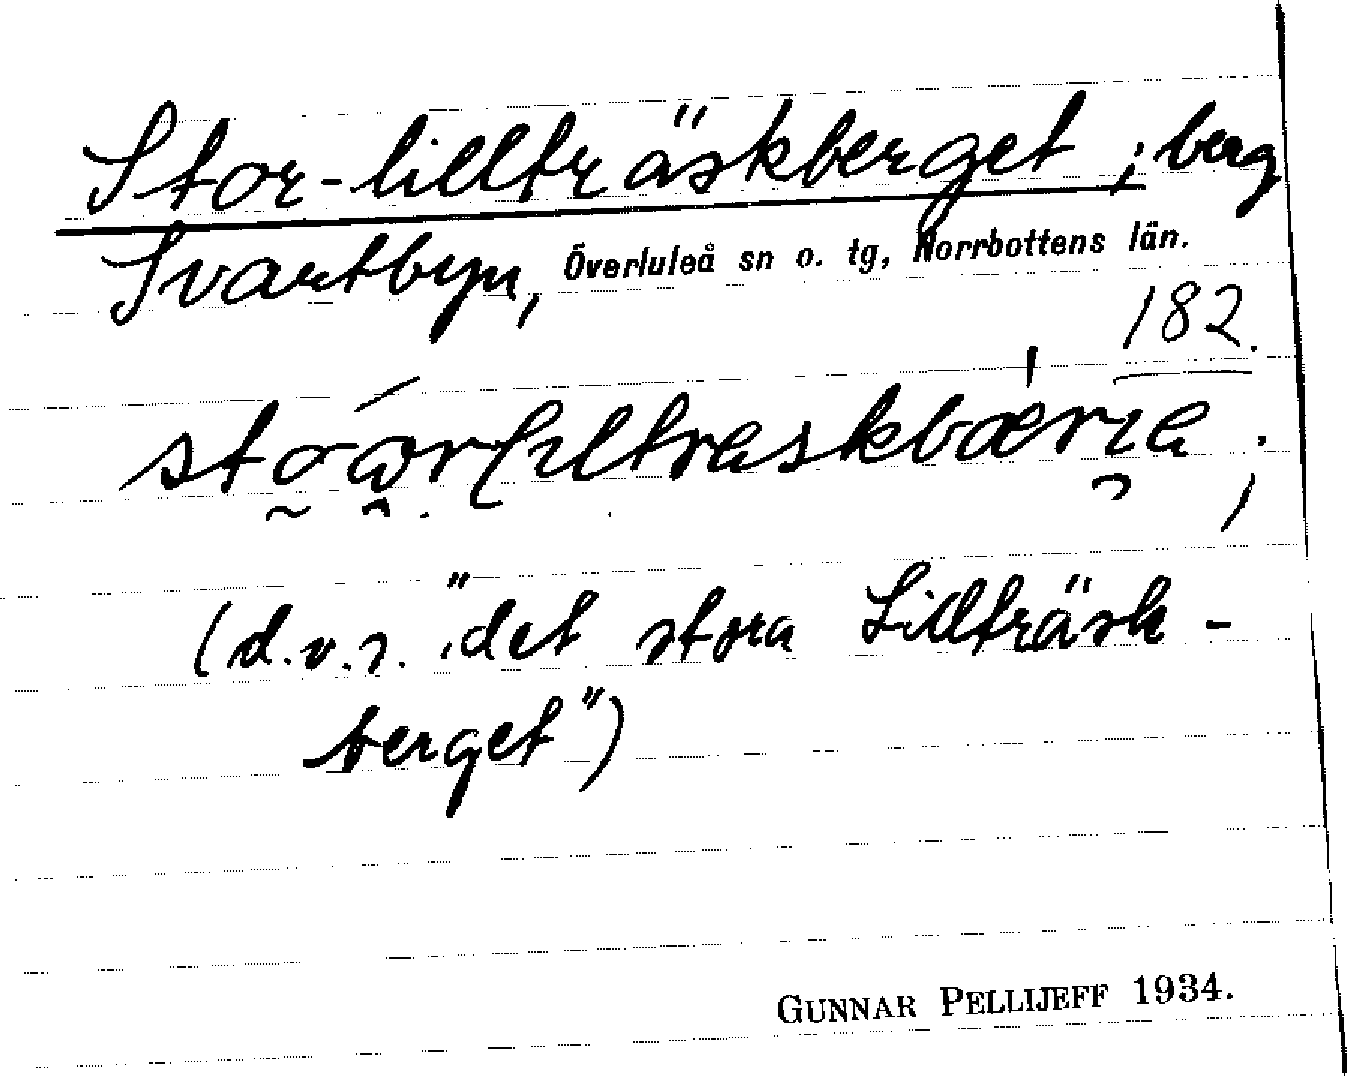 Stor-lillträskberget; berg
Svartbyn, Överluleå sn o. tg, Norrbottens län.
182.
(d.v.s. "det stora Lillträsk-
berget")
GUNNAR PELLIJEFF 1934.